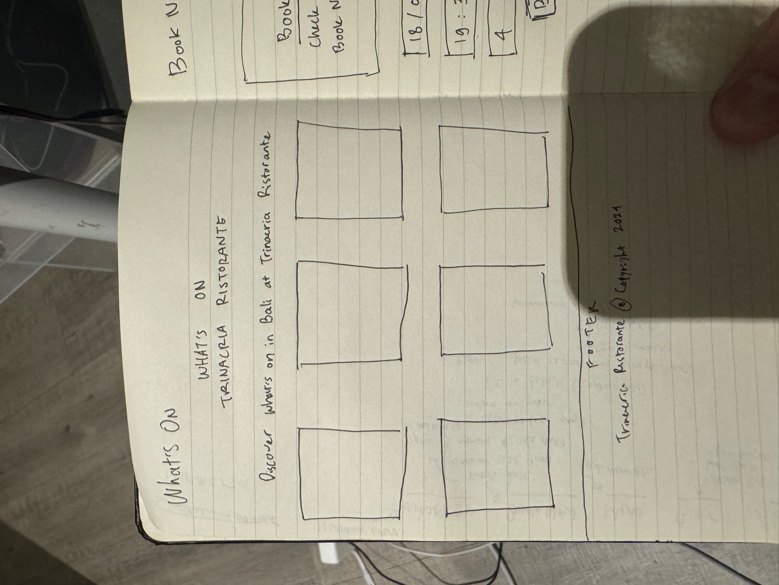 What's ON
WHAT'S ON
TRINACRIA RISTORANTE
Discover Whats on in Bali at Trinacria Ristorante
FOOTER
Trinacria Ristorante © Copyright 2024
Book N
Book
Check
Book N
18 / 0
19 :
4